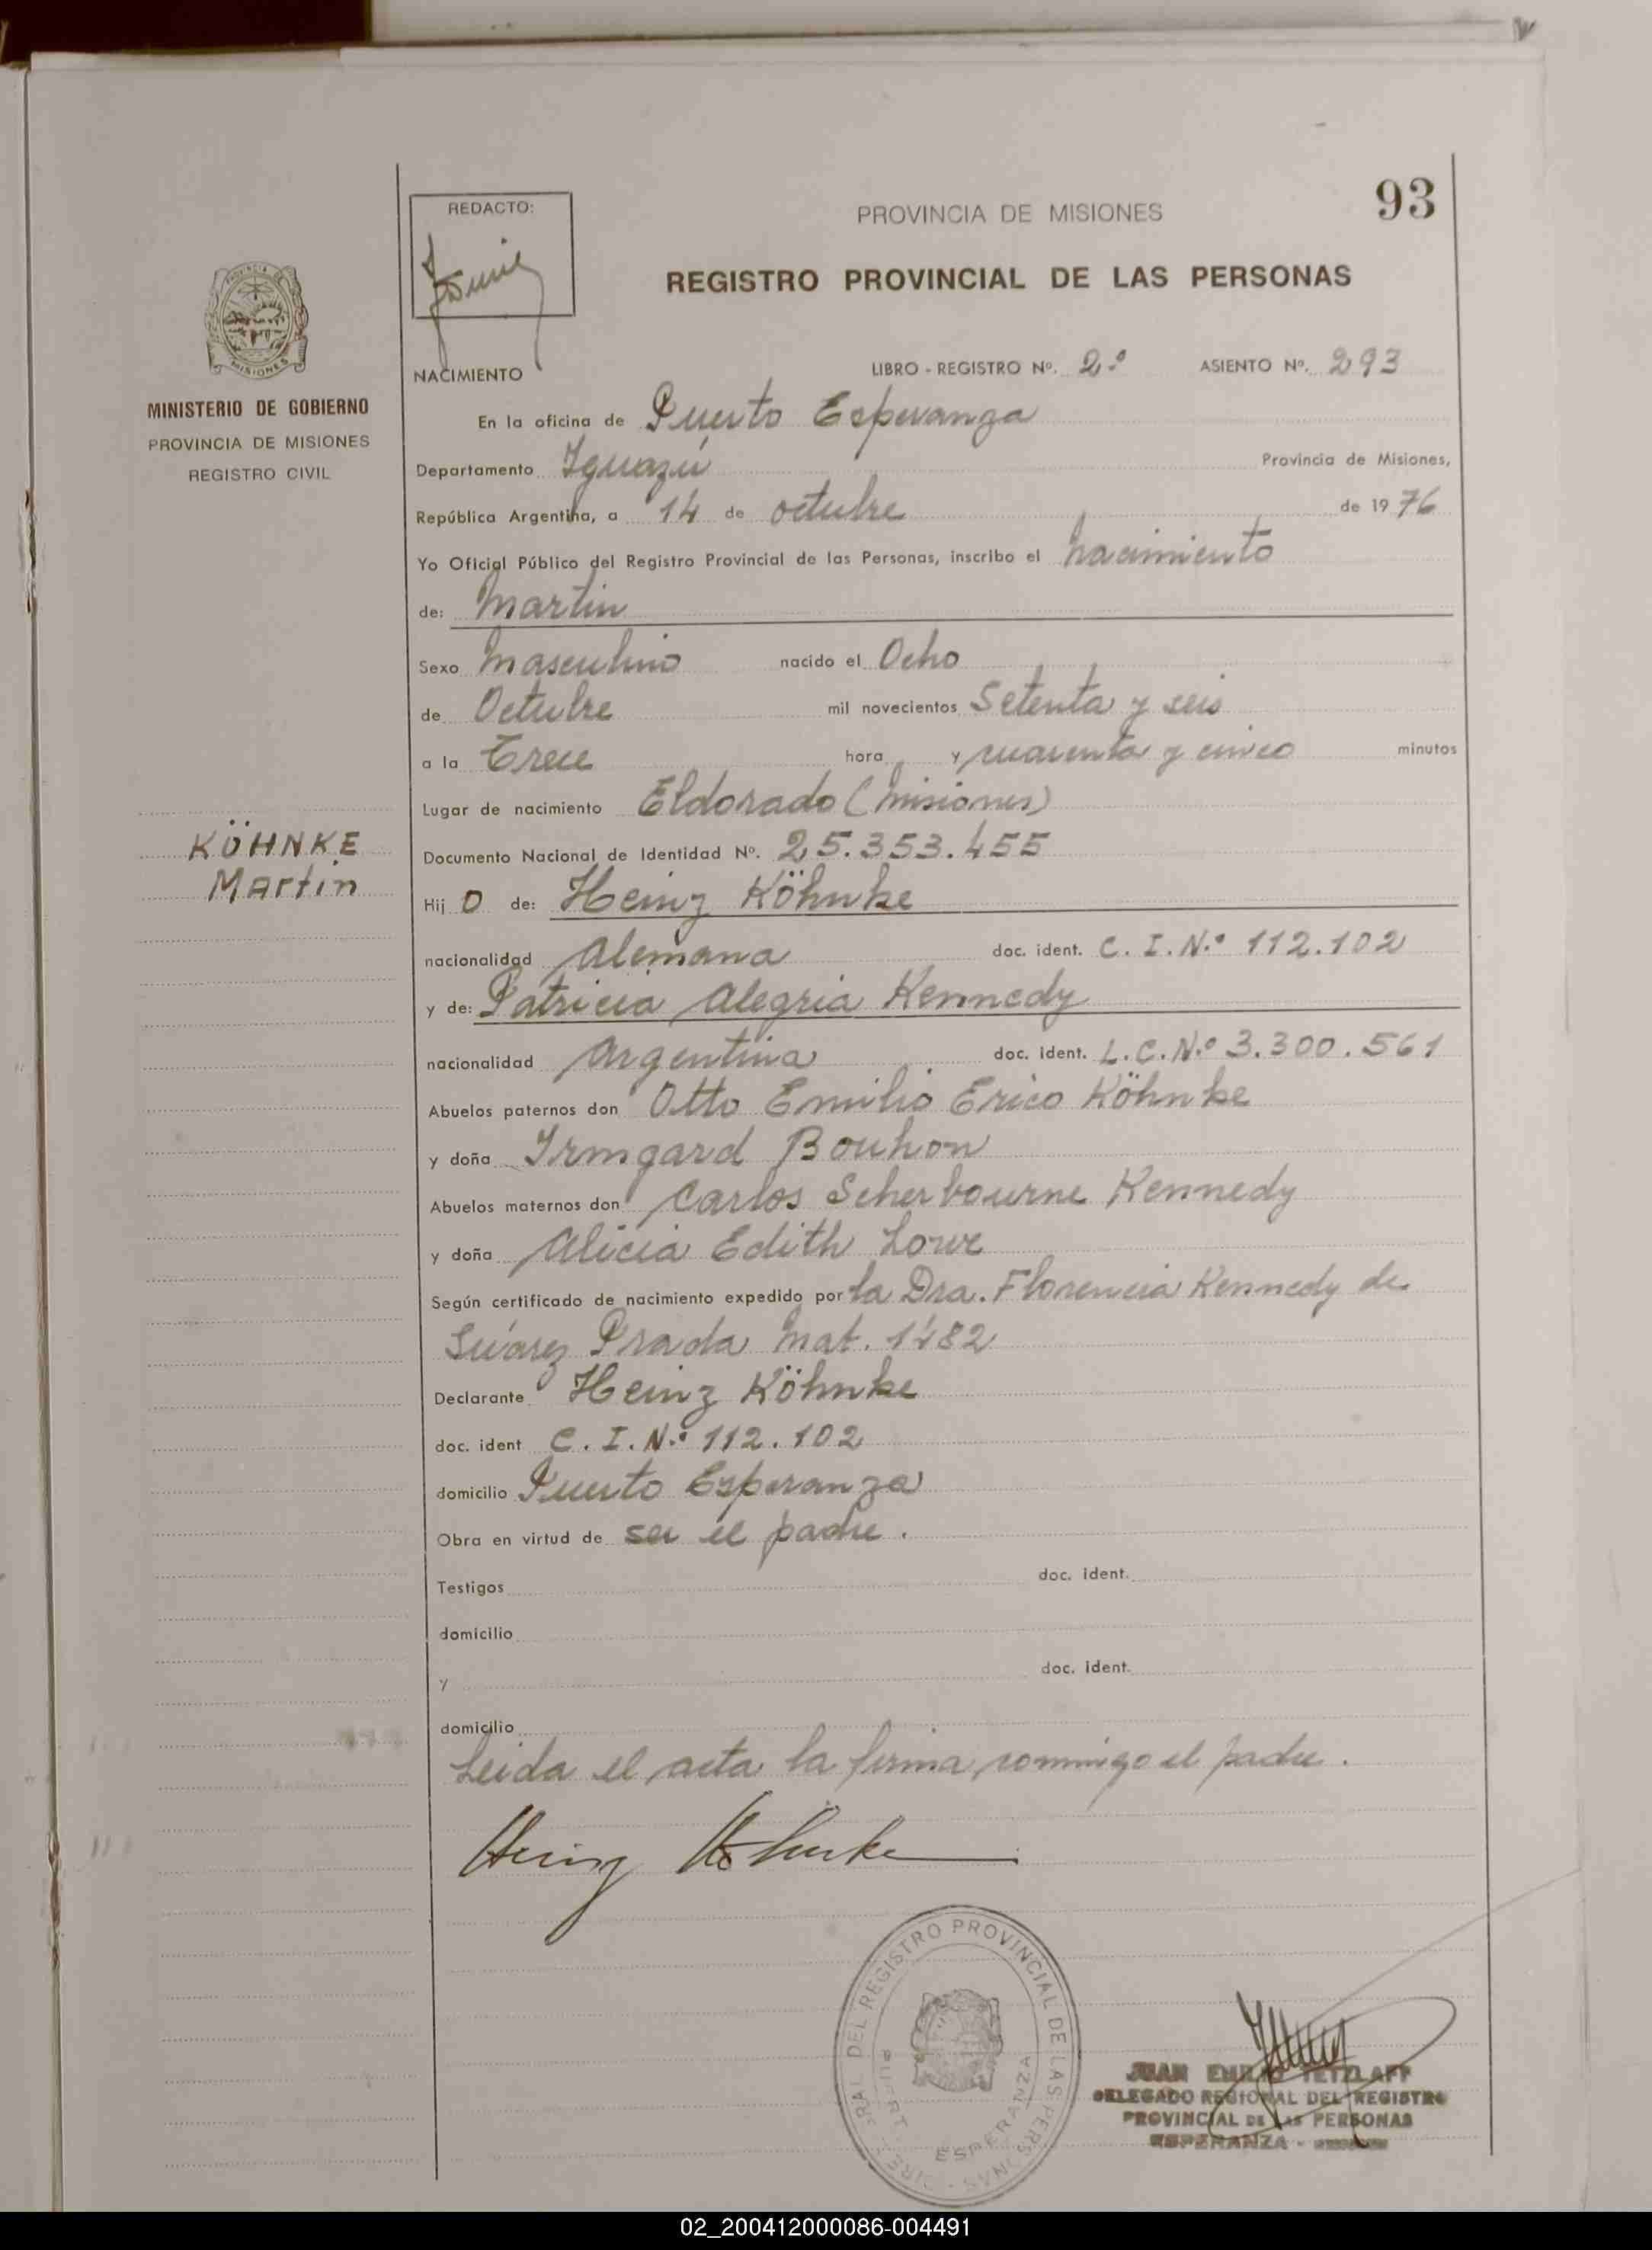 93
REDACTO:
PROVINCIA DE MISIONES
REGISTRO PROVINCIAL DE LAS PERSONAS
PROVINCIA DE
MISIONES
MINISTERIO DE GOBIERNO
PROVINCIA DE MISIONES
REGISTRO CIVIL
NACIMIENTO LIBRO - REGISTRO Nº. 2º ASIENTO Nº. 293
En la oficina de Puerto Esperanza
Departamento Iguazú Provincia de Misiones,
República Argentina, a 14 de octubre de 1976
Yo Oficial Público del Registro Provincial de las Personas, inscribo el nacimiento
de: Martin
Sexo Masculino nacido el Ocho
de Octubre mil novecientos Setenta y seis
a la Trece hora y cuarenta y cinco minutos
Lugar de nacimiento Eldorado (Misiones)
KÖHNKE
Martin
Documento Nacional de Identidad Nº. 25.353.455
Hij o de: Heinz Köhnke
nacionalidad Alemana doc. ident. C. I. N.º 112.102
y de: Patricia Alegria Kennedy
nacionalidad Argentina doc. ident. L.C.N.º 3.300.561
Abuelos paternos don Otto Emilio Erico Köhnke
y doña Irmgard Bouhon
Abuelos maternos don Carlos Scherbourne Kennedy
y doña Alicia Edith Lowe
Según certificado de nacimiento expedido por la Dra. Florencia Kennedy de
Suárez Prada Mat. 1482
Declarante Heinz Köhnke
doc. ident C. I. N.º 112.102
domicilio Puerto Esperanza
Obra en virtud de ser el padre.
Testigos doc. ident.
domicilio
y doc. ident.
domicilio
Leida el acta la firma conmigo el padre.
Heinz Köhnke
DEL REGISTRO PROVINCIAL DE LAS PERSONAS
ESPERANZA
JUAN EMILIO TETZLAFF
DELEGADO REGIONAL DEL REGISTRO
PROVINCIAL DE LAS PERSONAS
ESPERANZA -
02_200412000086-004491